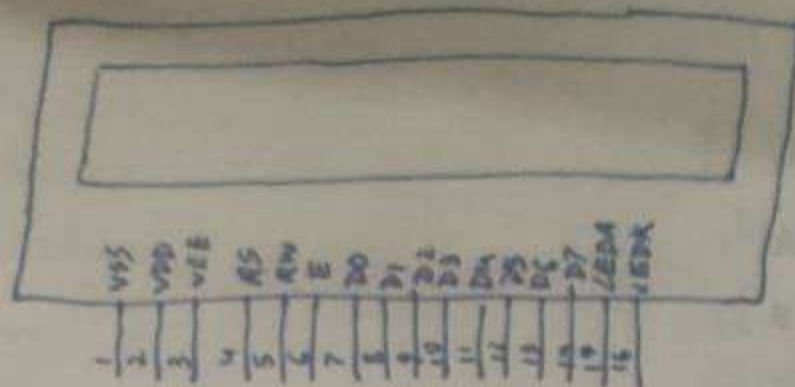 VSS
VDD
VEE
RS
RW
E
D0
D1
D2
D3
D4
D5
D6
D7
LEDA
LEDK
1
2
3
4
5
6
7
8
9
10
11
12
13
16